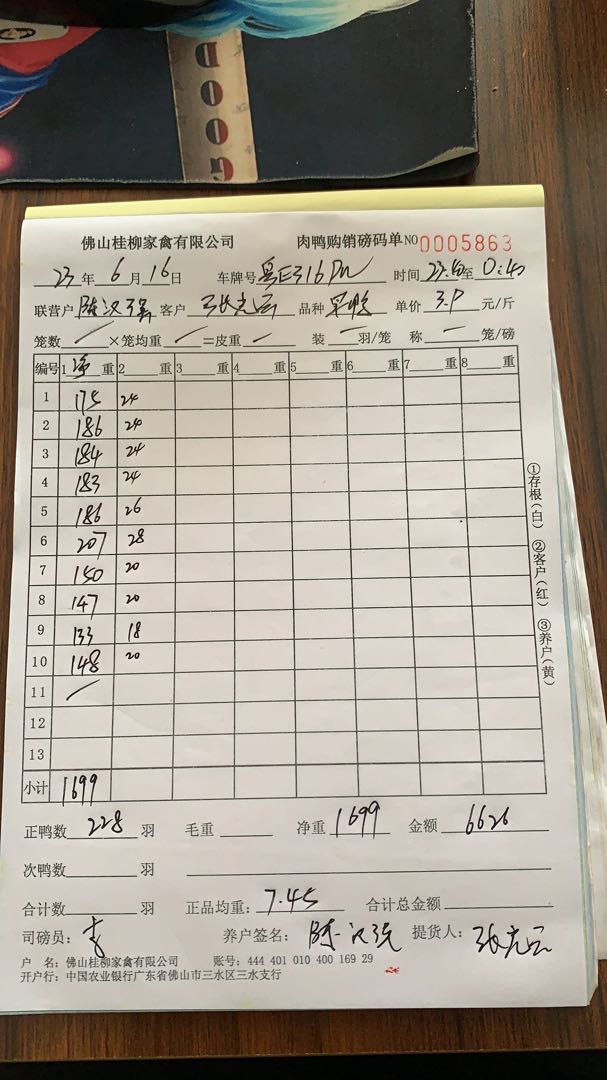 GOOD
佛山桂柳家禽有限公司 肉鸭购销磅码单 NO 0005863
23 年 6 月 16 日 车牌号 粤E316 时间 至 0:40
联营户 陈汉强 客户 张光云 品种 单价 3.9 元/斤
笼数 / ×笼均重 / =皮重 / 装 — 羽/笼 称 — 笼/磅
编号 1 净 重 2 重 3 重 4 重 5 重 6 重 7 重 8 重
1 175 24
2 186 24
3 184 24
4 183 24
5 186 26
6 207 28
7 150 20
8 147 20
9 133 18
10 148 20
11 /
12
13
小计 1699
①存根(白) ②客户(红) ③养户(黄)
正鸭数 228 羽 毛重 净重 1699 金额 6626
次鸭数 羽
合计数 羽 正品均重: 7.45 合计总金额
司磅员: 李 养户签名: 陈汉强 提货人: 张光云
户 名: 佛山桂柳家禽有限公司 账号: 444 401 010 400 169 29
开户行: 中国农业银行广东省佛山市三水区三水支行